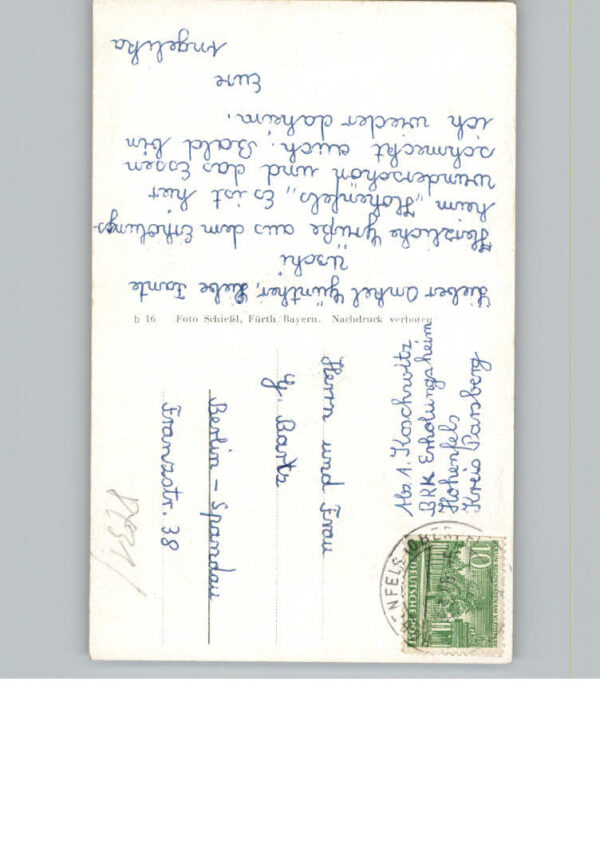 Lieber Onkel Günther, liebe Tante
Uschi
Herzliche Grüße aus dem Erholungs-
heim „Hohenfels„ Es ist hier
wunderschön und das Essen
schmeckt auch. Bald bin
ich wieder daheim.
Eure
Angelika
h 16 Foto Schießl, Fürth/Bayern. Nachdruck verboten
Abs. A. Koschwitz
BRK Erholungsheim
Hohenfels
Kreis Parsberg
Herrn und Frau
G. Bartz
Berlin – Spandau
Franzstr. 38
ENFELS (OBER
10
DEUTSCHE POST